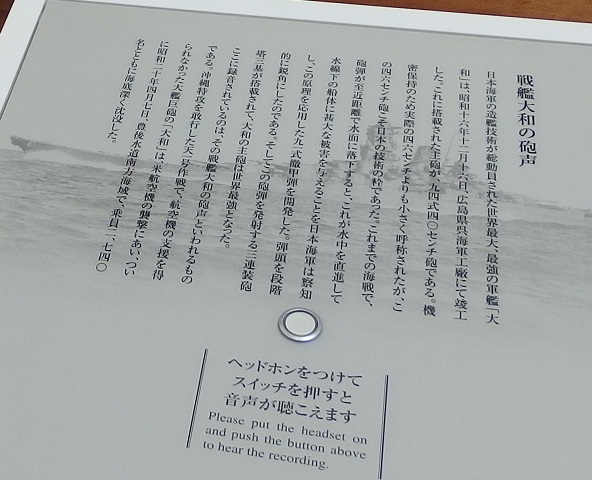 戦艦大和の砲声
日本海軍の造艦技術が総動員された世界最大、最強の軍艦「大
和」は、昭和十六年十二月十六日、広島県呉海軍工廠にて竣工
した。これに搭載された主砲が九四式四〇センチ砲である。機
密保持のため実際の四六センチよりも小さく呼称されたが、こ
の四六センチ砲こそ日本の技術の粋であった。これまでの海戦で、
砲弾が至近距離で水面に落下すると、これが水中を直進して
水線下の船体に甚大な被害を与えることを日本海軍は察知
し、この原理を応用した九一式徹甲弾を開発した。弾頭を段階
的に鋭角にしたのである。そしてこの砲弾を発射する三連装砲
塔三基が搭載されて、大和の主砲は世界最強となった。
ここに録音されているのは、その戦艦大和の砲声といわれるもの
である。沖縄特攻を敢行した天一号作戦で、航空機の支援を得
られなかった大艦巨砲の「大和」は、米航空機の襲撃にあい、つい
に昭和二十年四月七日、豊後水道南方海域で、乗員二、七四〇
名とともに海底深く沈没した。
ヘッドホンをつけて
スイッチを押すと
音声が聴こえます
Please put the headset on
and push the button above
to hear the recording.